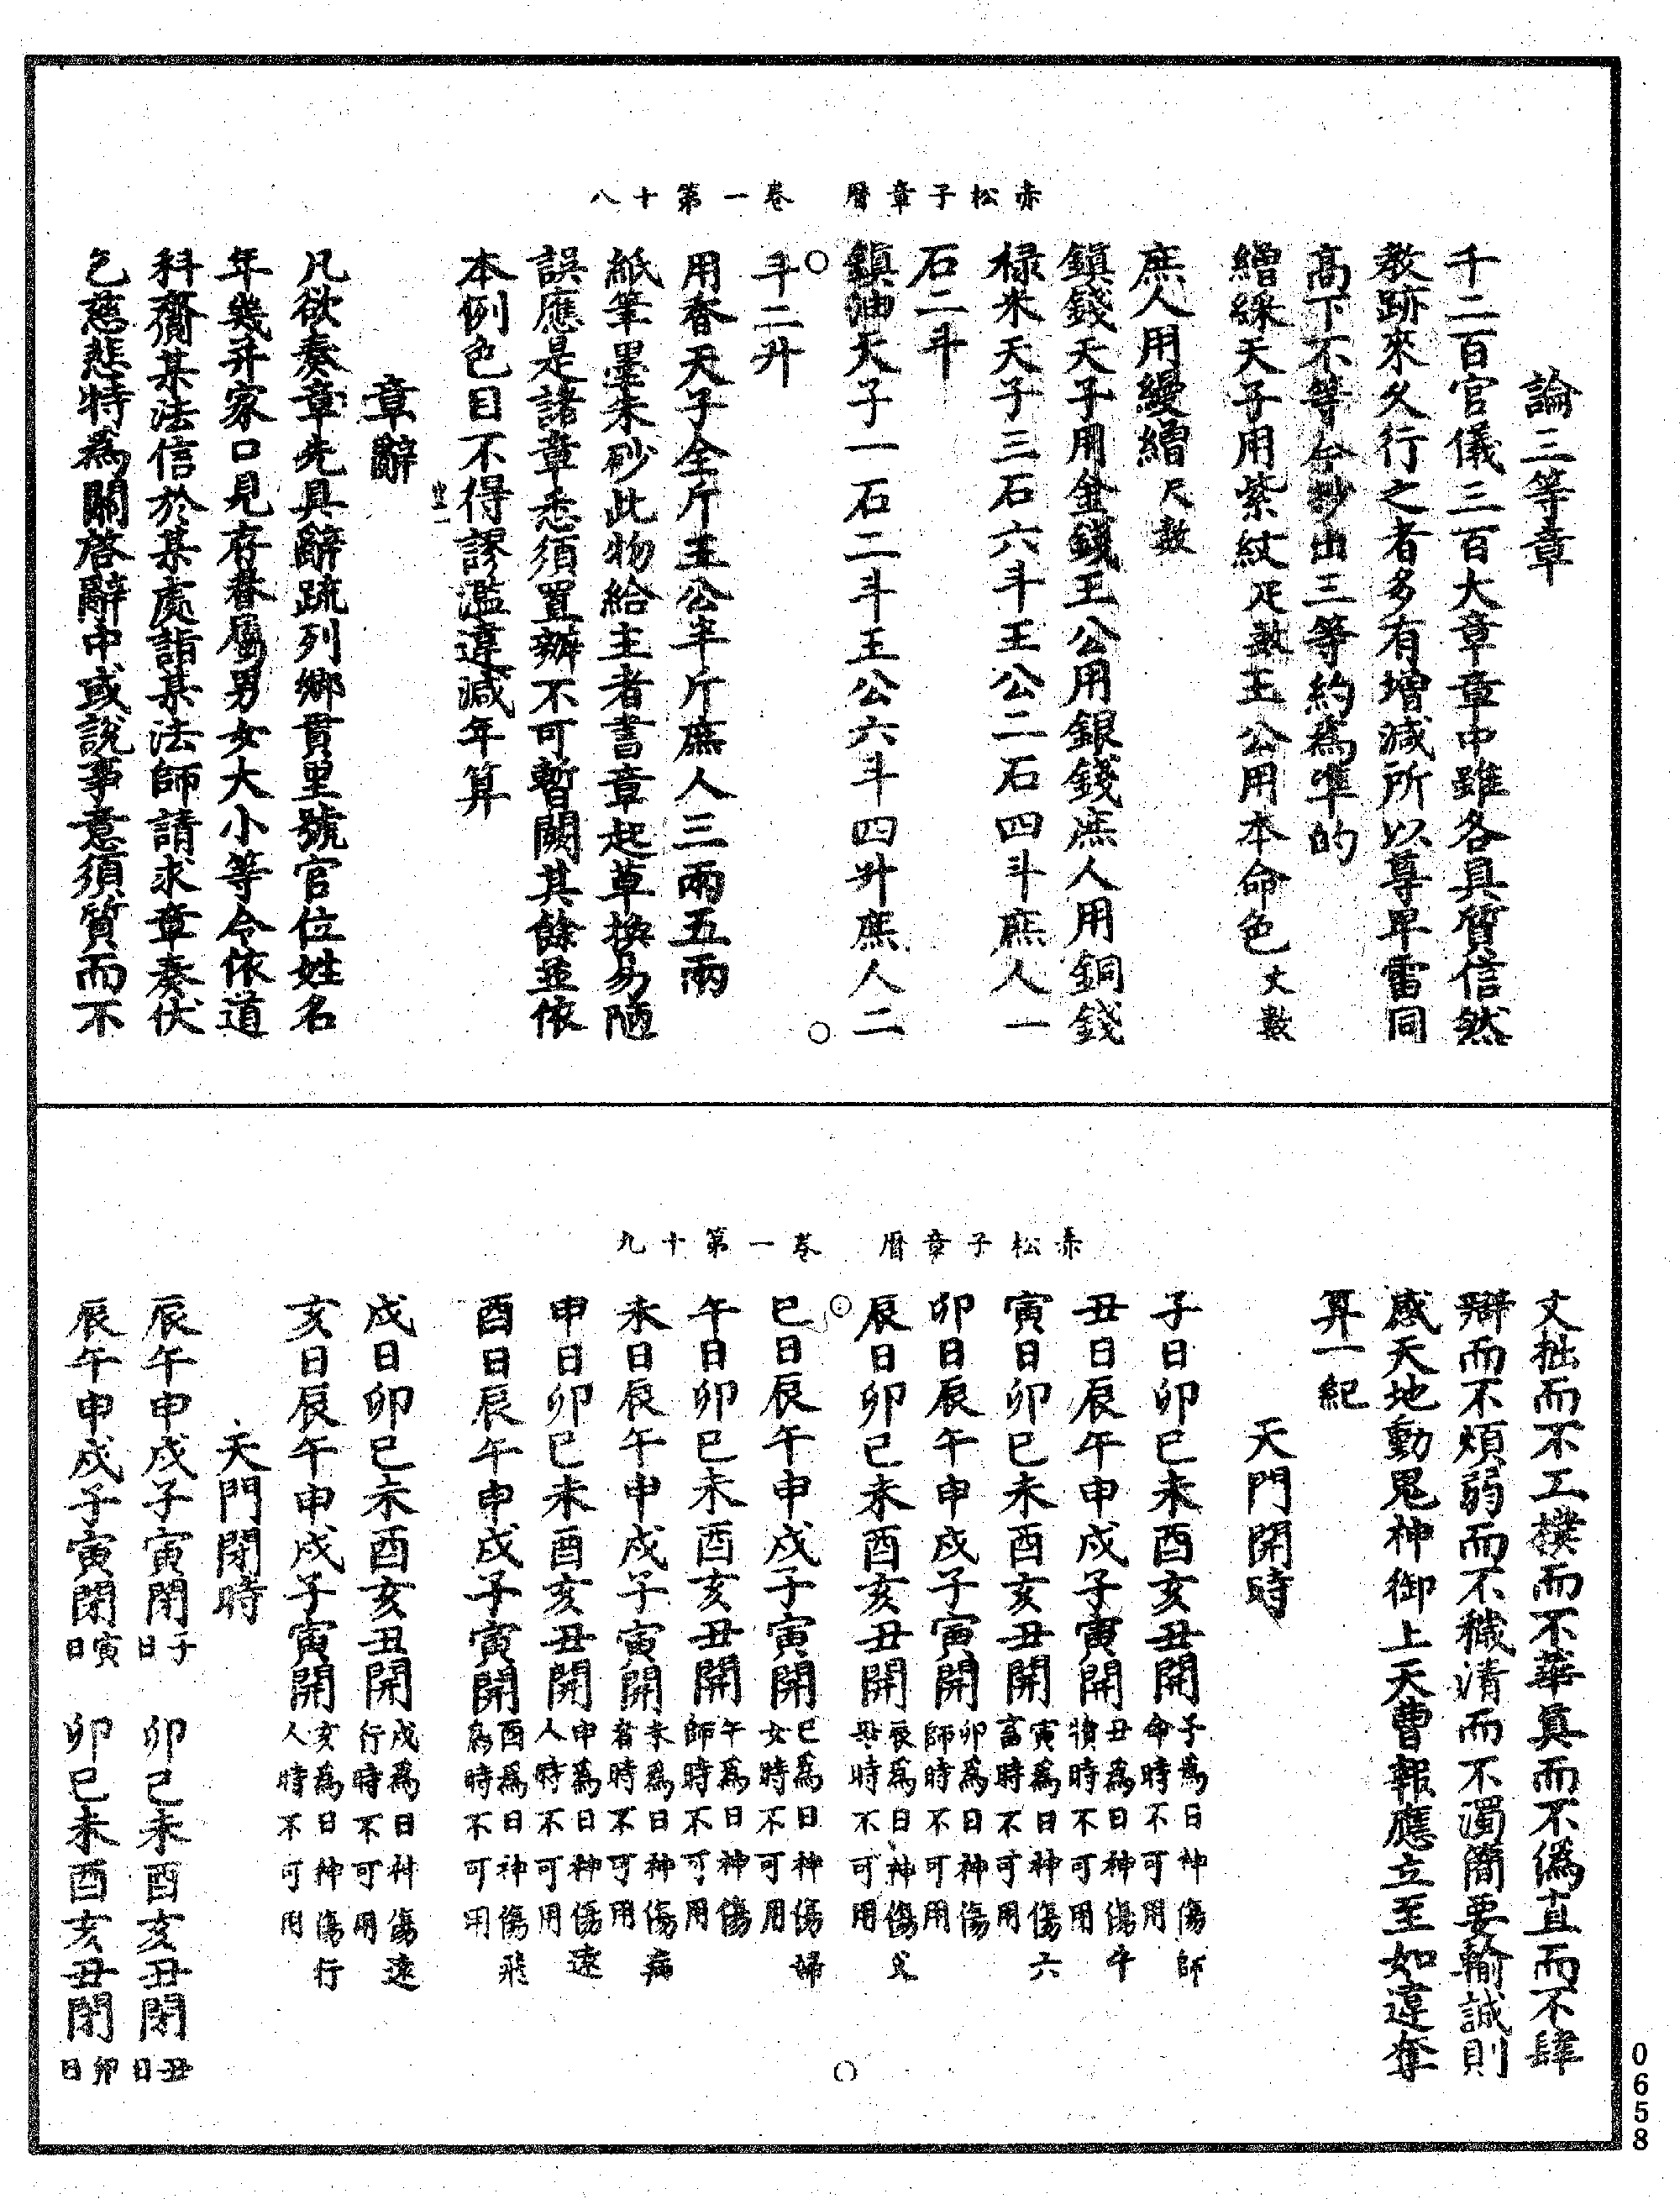 赤松子章曆　卷一第十八
論三等章
千二百官儀三百大章章中雖各具質信然
教跡來久行之者多有增減所以尊卑雷同
高下不等今抄出三等約爲準的
繒綵天子用紫紋疋數王公用本命色丈數
庶人用縵繒尺數
鎮錢天子用金錢王公用銀錢庶人用銅錢
祿米天子三石六斗王公二石四斗庶人一
石二斗
鎮油天子一石二斗王公六斗四升庶人二
斗二升
用香天子全斤王公半斤庶人三兩五兩
紙筆墨朱砂此物給主者書章起草換易陋
誤應是諸章悉須置辦不可暫闕其餘並依
本例色目不得謬濫違減年筭
章辭
凡欲奏章先具辭疏列鄉貫里號官位姓名
年幾并家口見存眷屬男女大小等令依道
科齎某法信於某處詣某法師請求章奏伏
乞慈悲特爲關啓辭中或說事意須質而不
赤松子章曆　卷一第十九
文拙而不工樸而不華真而不僞直而不肆
辯而不煩弱而不穢清而不濁簡要輸誠則
感天地動鬼神御上天曹報應立至如違奪
筭一紀
天門開時
子日卯巳未酉亥丑開子爲日神傷師命時不可用
丑日辰午申戌子寅開丑爲日神傷牛犢時不可用
寅日卯巳未酉亥丑開寅爲日神傷六畜時不可用
卯日辰午申戌子寅開卯爲日神傷師時不可用
辰日卯巳未酉亥丑開辰爲日神傷父母時不可用
巳日辰午申戌子寅開巳爲日神傷婦女時不可用
午日卯巳未酉亥丑開午爲日神傷師時不可用
未日辰午申戌子寅開未爲日神傷病者時不可用
申日卯巳未酉亥丑開申爲日神傷遠人時不可用
酉日辰午申戌子寅開酉爲日神傷飛鳥時不可用
戌日卯巳未酉亥丑開戌爲日神傷遠行時不可用
亥日辰午申戌子寅開亥爲日神傷行人時不可用
天門閉時
辰午申戌子寅閉子日　卯巳未酉亥丑閉丑日
辰午申戌子寅閉寅日　卯巳未酉亥丑閉卯日
0658